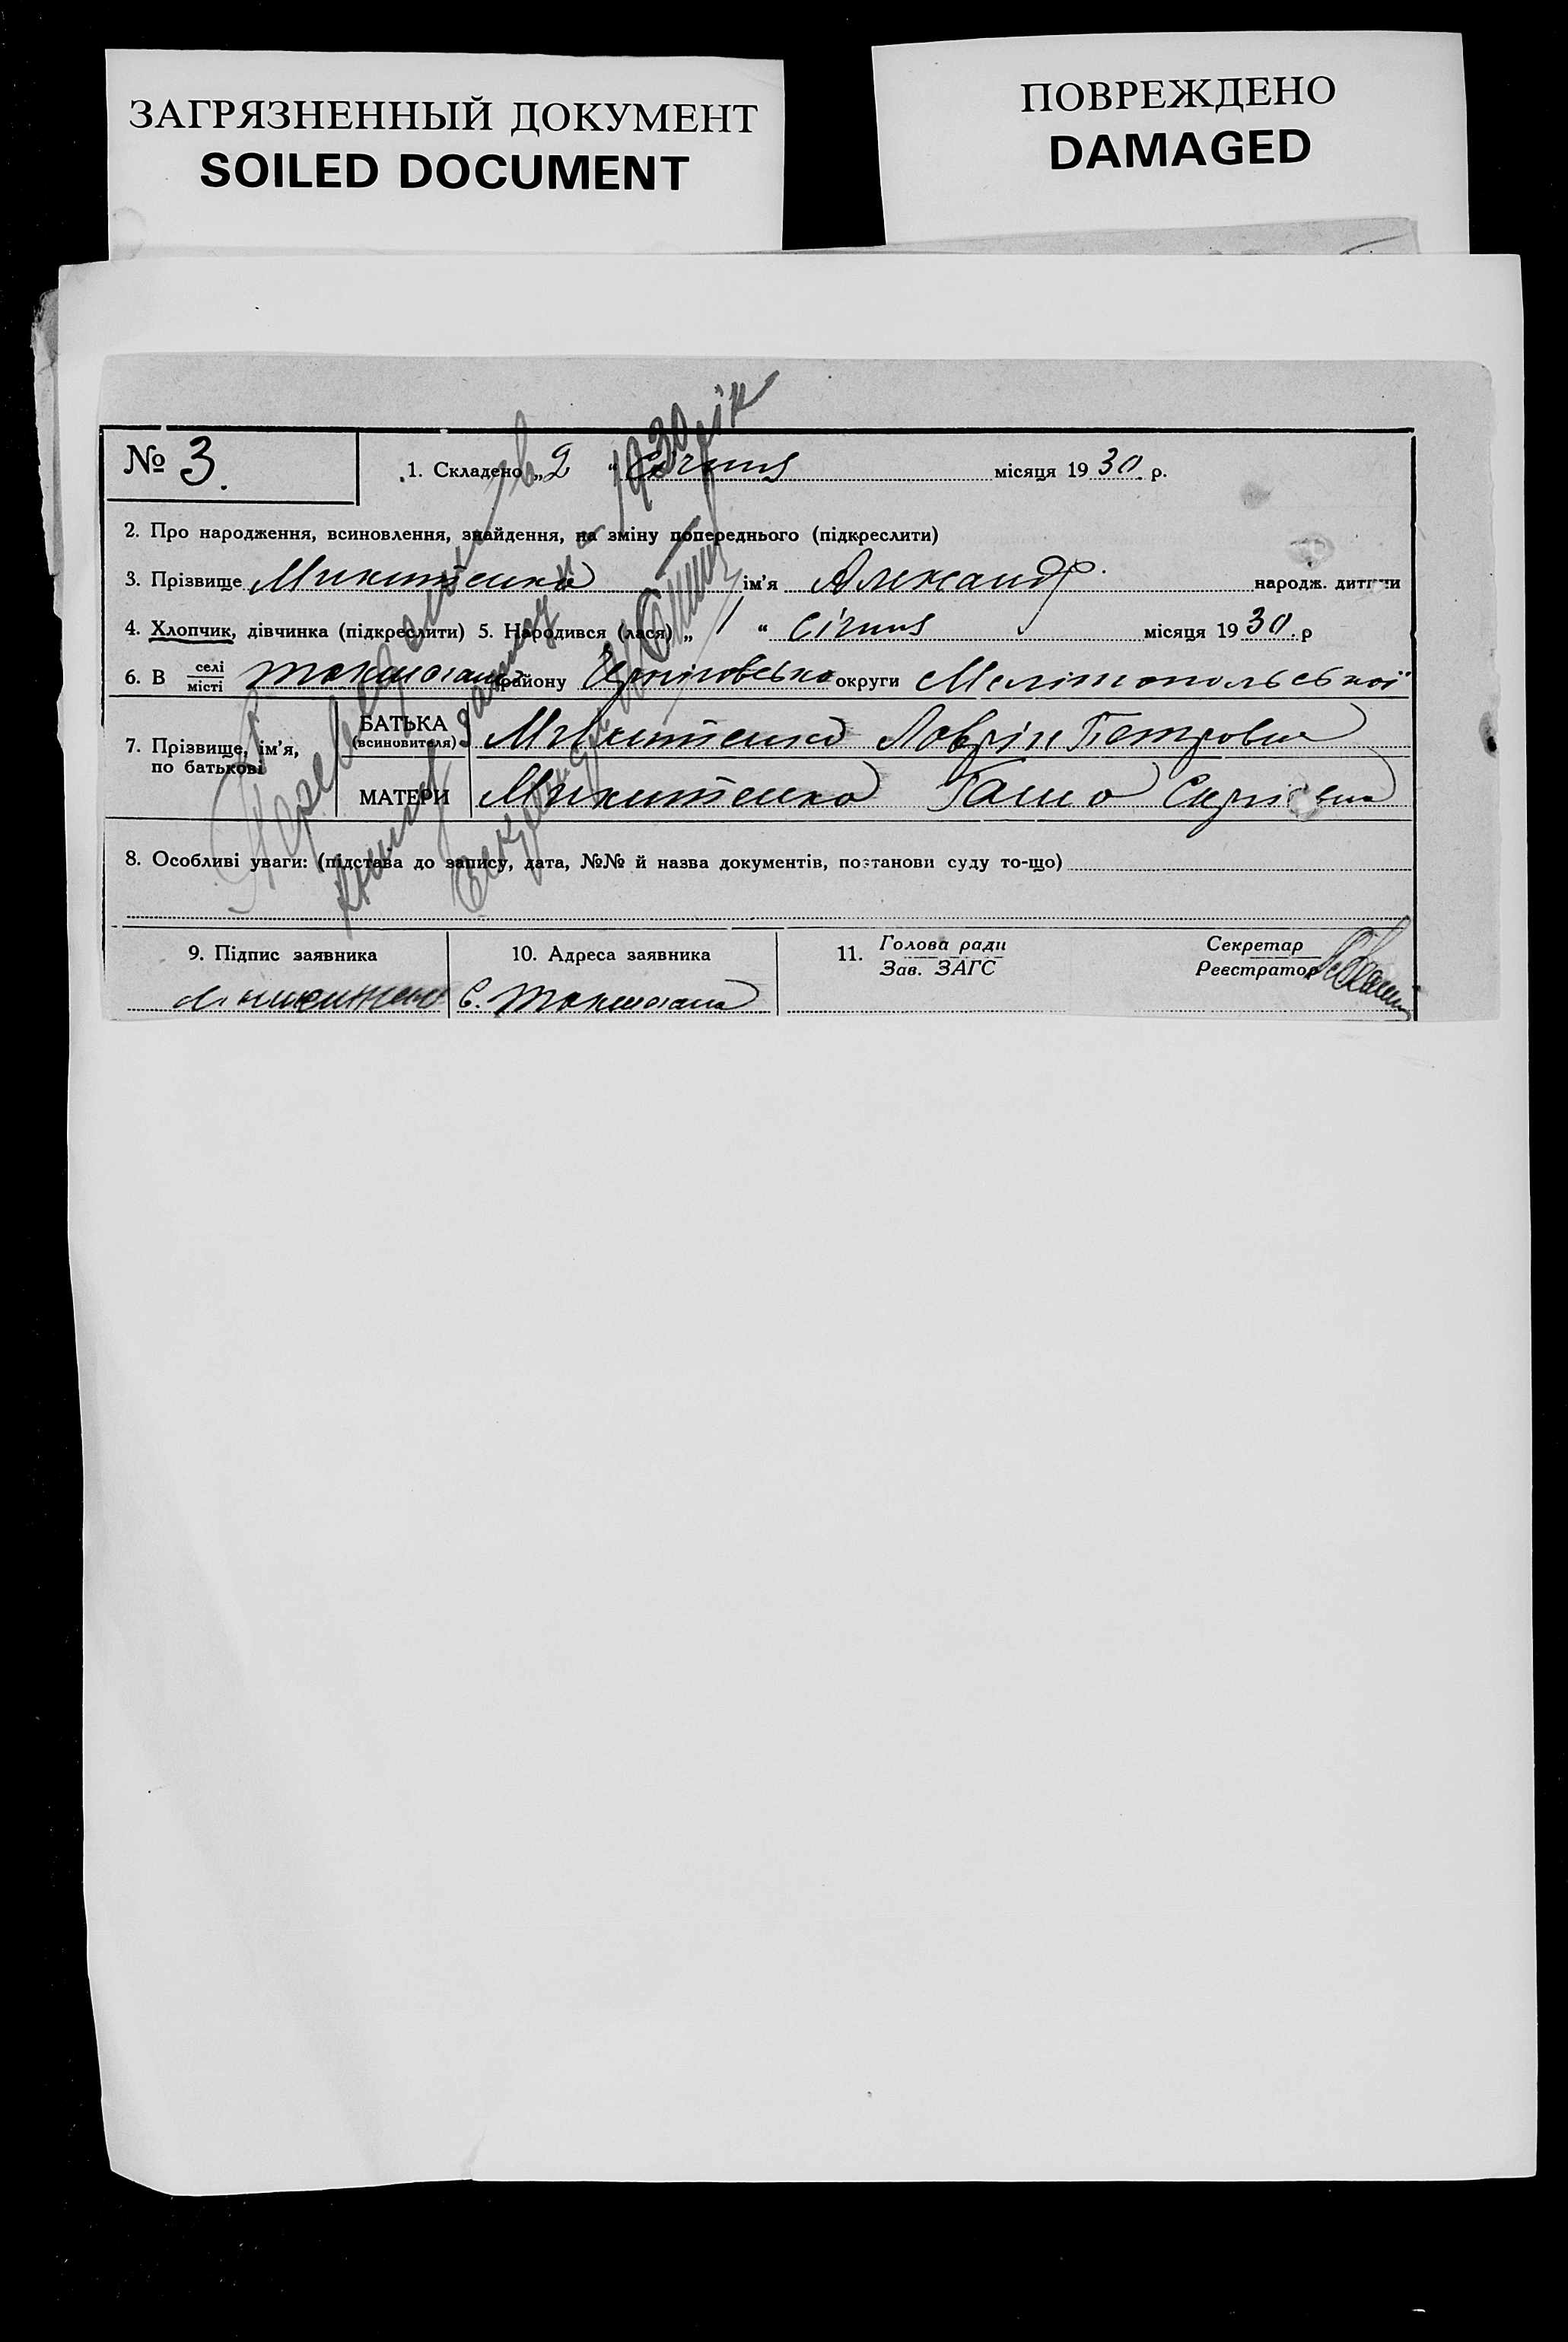 ЗАГРЯЗНЕННЫЙ ДОКУМЕНТ
SOILED DOCUMENT
ПОВРЕЖДЕНО
DAMAGED
№ 3.
1. Складено „2“ Січня місяця 1930. р.
2. Про народження, всиновлення, знайдення, на зміну попереднього (підкреслити)
3. Прізвище Микитенко ім'я Александр. народж. дитини
4. Хлопчик, дівчинка (підкреслити) 5. Народився (лася) „1“ січня місяця 1930. р
6. В селі місті Токмачка району Черніговсько округи Мелітопольської
7. Прізвище, ім'я, по батькові
БАТЬКА (всиновителя) Микитенко Лаврін Петровис
МАТЕРИ Микитенко Ганна
8. Особливі уваги: (підстава до запису, дата, №№ й назва документів, постанови суду то-що)
9. Підпис заявника
10. Адреса заявника
11. Голова ради
Зав. ЗАГС
Секретар
Реєстратор
Микитенко
с.
Перевірено в
книгу за 1930 рік
Секретар